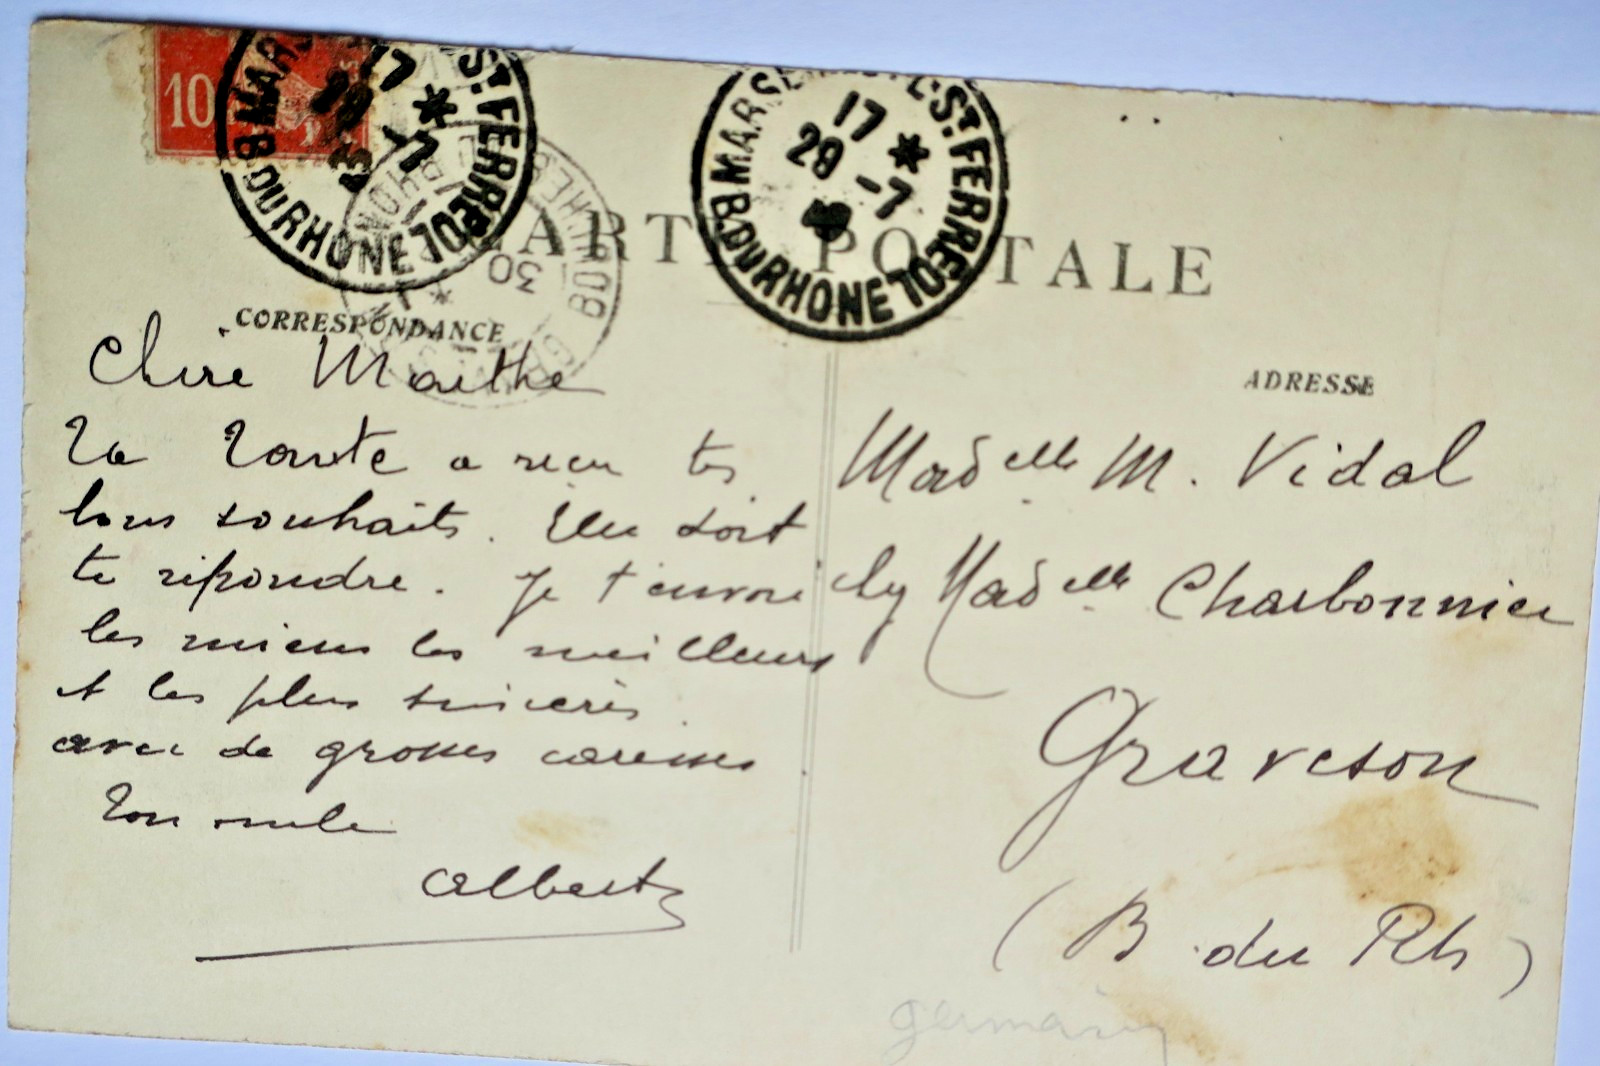 10
MARSEILLE ST FERREOL
17 *
29 -7
13
B. DU RHONE
MARSEILLE ST FERREOL
17 *
29 -7
B. DU RHONE
30
CARTE POSTALE
CORRESPONDANCE
Chère Marthe
Ta Tante a reçu tes
bons souhaits. Elle doit
te répondre. Je t'envoie
les miens les meilleurs
et les plus sincères
avec de grosses caresses
Ton oncle
Albert
ADRESSE
Madelle M. Vidal
chez Madelle Charbonnier
Graveson
(B. du Rh)
germain